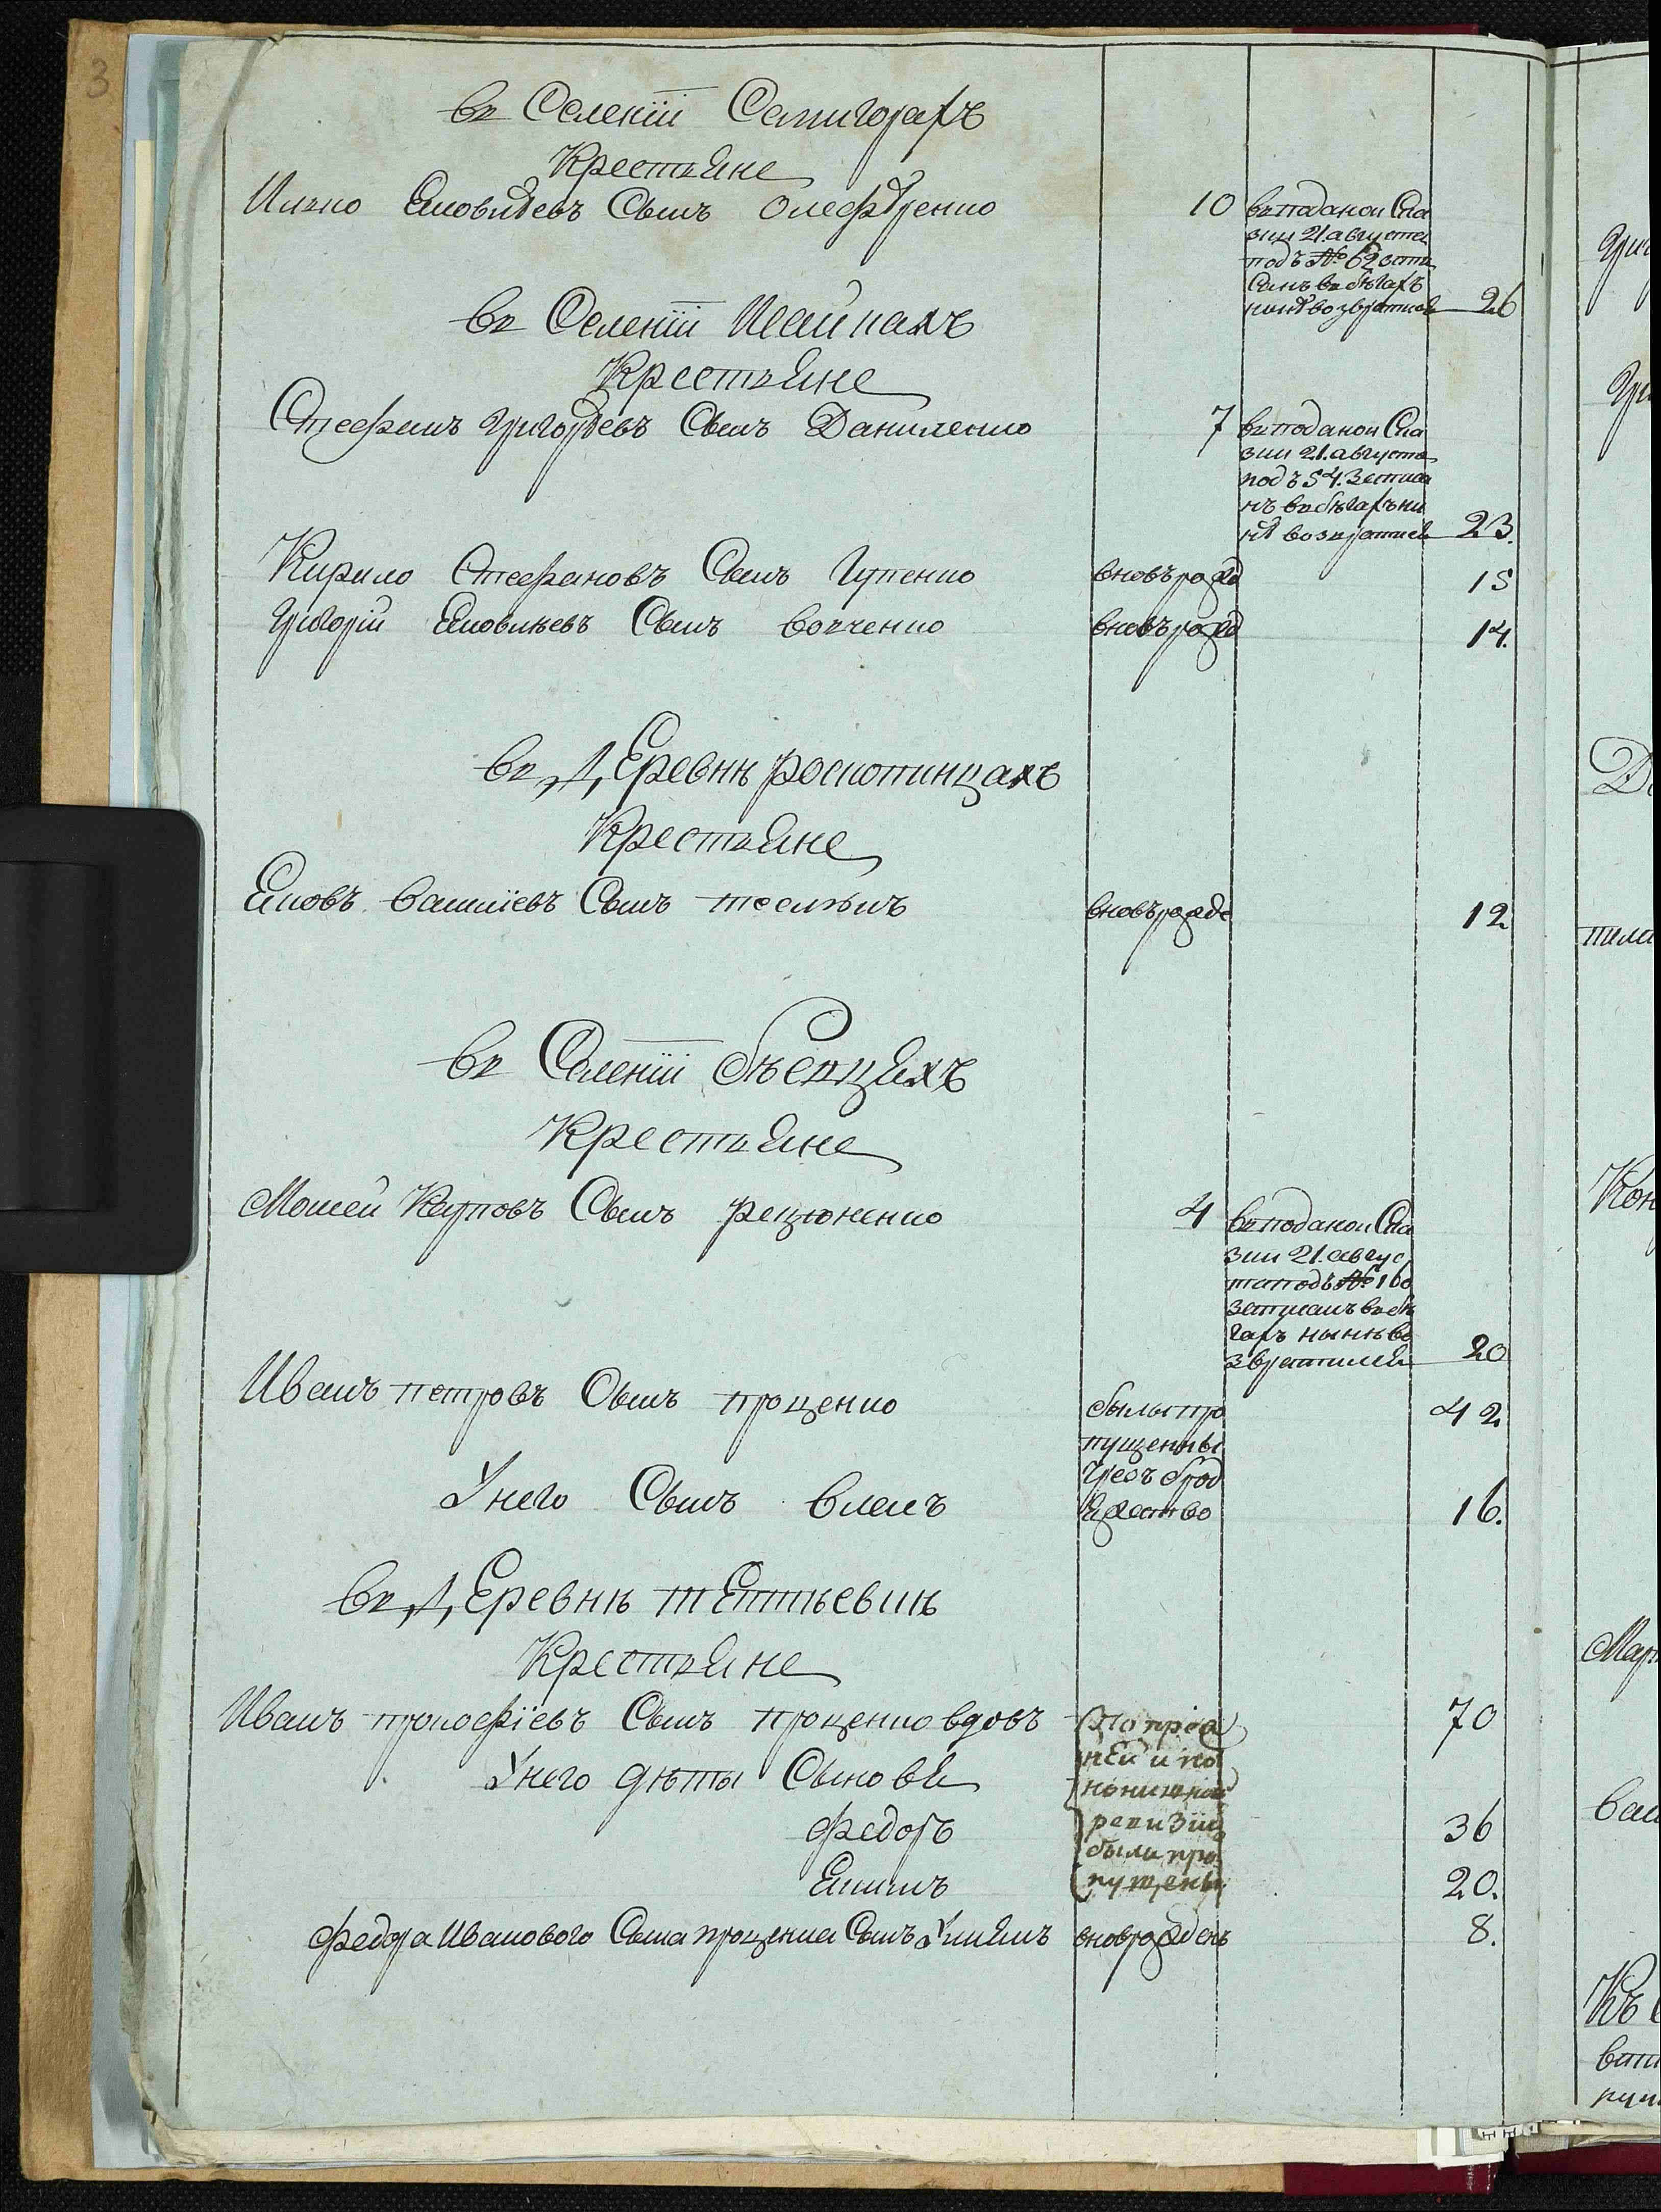 3
въ Селенiи Самигорахъ
Крестьяне
Илько Яковлевъ Сынъ Олефѣренко 10 въ поданой Ска
зки 21. августа
подъ № 62 запи
санъ въ бѣгахъ
нинѣ возвратился 26
въ Селенiи Шайкахъ
Крестьяне
Стефанъ Григорѣевъ Сынъ Даниленко 7 въ поданой Ска
зки 21. августа
подъ 54. записа
нъ въ бѣгахъ ни
нѣ возвратився 23.
Кирило Стефановъ Сынъ Гупенко вновь рожд 15
Григорiй Яковлевъ Сынъ Вовченко вновь рожд 14.
въ Деревнѣ роскопинцахъ
Крестьяне
Яковъ Василiевъ Сынъ вновь рожде 12
въ Селенiи бѣевцяхъ
Крестьяне
Мокей Карповъ Сынъ 4 въ поданой Ска
зки 21. авгус
та подъ № 160
записанъ въ бѣ
гахъ нынѣ во
звратился 20
Иванъ петровъ Сынъ проценко были про 42
пущенны
чрезъ брод
Унего Сынъ власъ яжество 16.
въ Деревнѣ тептѣевкѣ
Крестьяне
Иванъ прокофiевъ Сынъ проценко вдовъ По преж 70
ней и по
Унего дѣты Сыновя нонишней
федоръ ревизiи 36
были про
Якимъ пущены 20.
федора Иванового Сына проценка Сынъ Улиянъ вновь рожденъ 8.